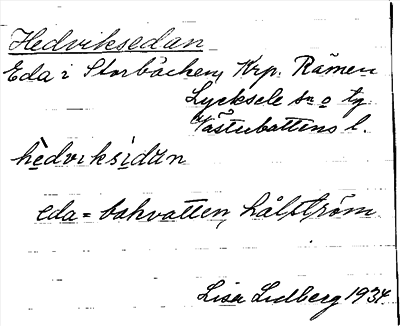 Hedviksedan
Eda i Storbäcken, Krp. Råmen
Lycksele sn o tg
Västerbottens l.
hèdvıksìdān
eda = bakvatten, hålström
Lisa Lidberg 1934.